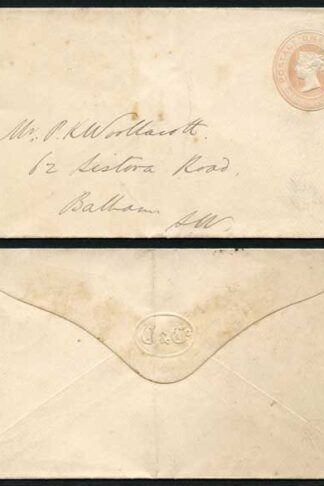 POSTAGE ONE
Mr. P. K. Woollacott.
62 Sistova Road,
Balham
S.W.
C & Co